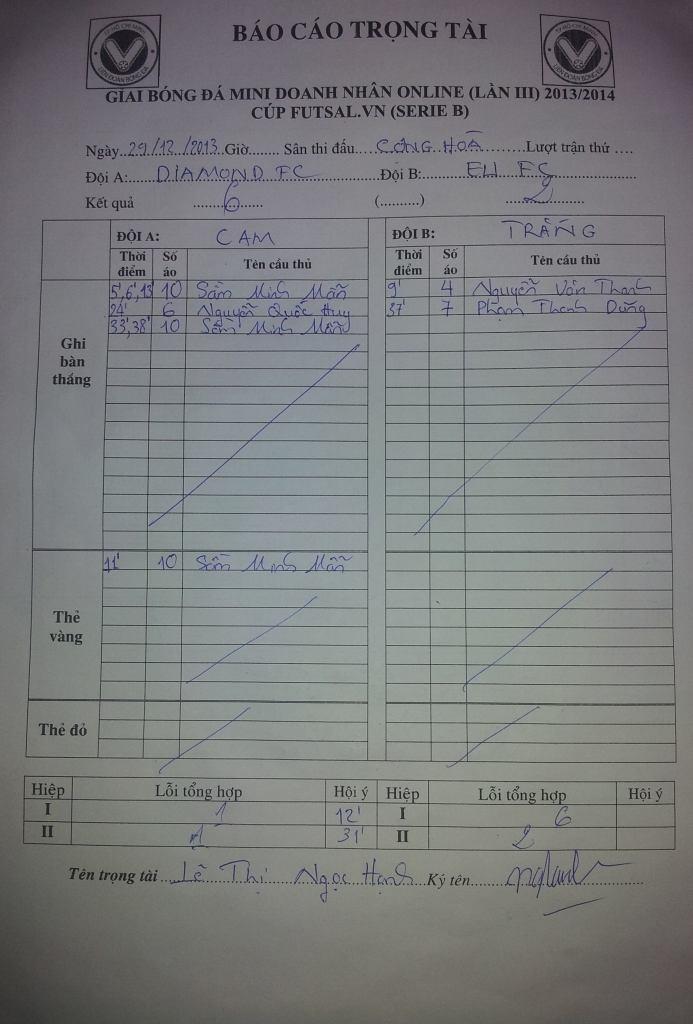 TP HỒ CHÍ MINH
LIÊN ĐOÀN BÓNG ĐÁ
BÁO CÁO TRỌNG TÀI
TP HỒ CHÍ MINH
LIÊN ĐOÀN BÓNG ĐÁ
GIẢI BÓNG ĐÁ MINI DOANH NHÂN ONLINE (LẦN III) 2013/2014
CÚP FUTSAL.VN (SERIE B)
Ngày..29/12/2013 Giờ........ Sân thi đấu...CỘNG HOÀ........Lượt trận thứ ....
Đội A:......DIAMOND FC..................Đội B:..........ELI FC......................
Kết quả ........6......... (..........) .........2.........
ĐỘI A: CAM ĐỘI B: TRẮNG
Thời điểm Số áo Tên cầu thủ Thời điểm Số áo Tên cầu thủ
Ghi bàn thắng
5',6',13' 10 Sầm Minh Mẫn 9' 4 Nguyễn Văn Thanh
24' 6 Nguyễn Quốc Huy 37' 7 Phạm Thanh Dũng
33',38' 10 Sầm Minh Mẫn
Thẻ vàng
11' 10 Sầm Minh Mẫn
Thẻ đỏ
Hiệp Lỗi tổng hợp Hội ý Hiệp Lỗi tổng hợp Hội ý
I 1 12' I 6
II 1 31' II 2
Tên trọng tài ...Lê Thị Ngọc Hạnh..Ký tên